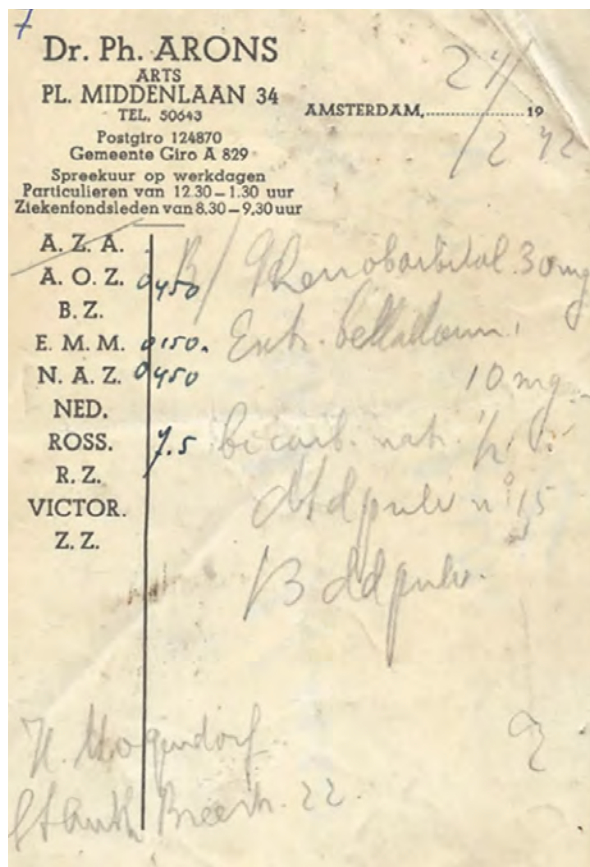 7
Dr. Ph. ARONS
ARTS
PL. MIDDENLAAN 34
TEL. 50643
Postgiro 124870
Gemeente Giro A 829
Spreekuur op werkdagen
Particulieren van 12.30 – 1.30 uur
Ziekenfondsleden van 8.30 – 9.30 uur
AMSTERDAM, 19
24/2 42
A. Z. A.
A. O. Z. 0450
B. Z.
E. M. M. 0150.
N. A. Z. 0450
NED.
ROSS. 7.5
R. Z.
VICTOR.
Z. Z.
R/ Phenobarbital 30 mg
Extr. belladonn.
10 mg.
bicarb. natr.
dtd pulv no 15
3 dd pulv.
Breestr. 22.